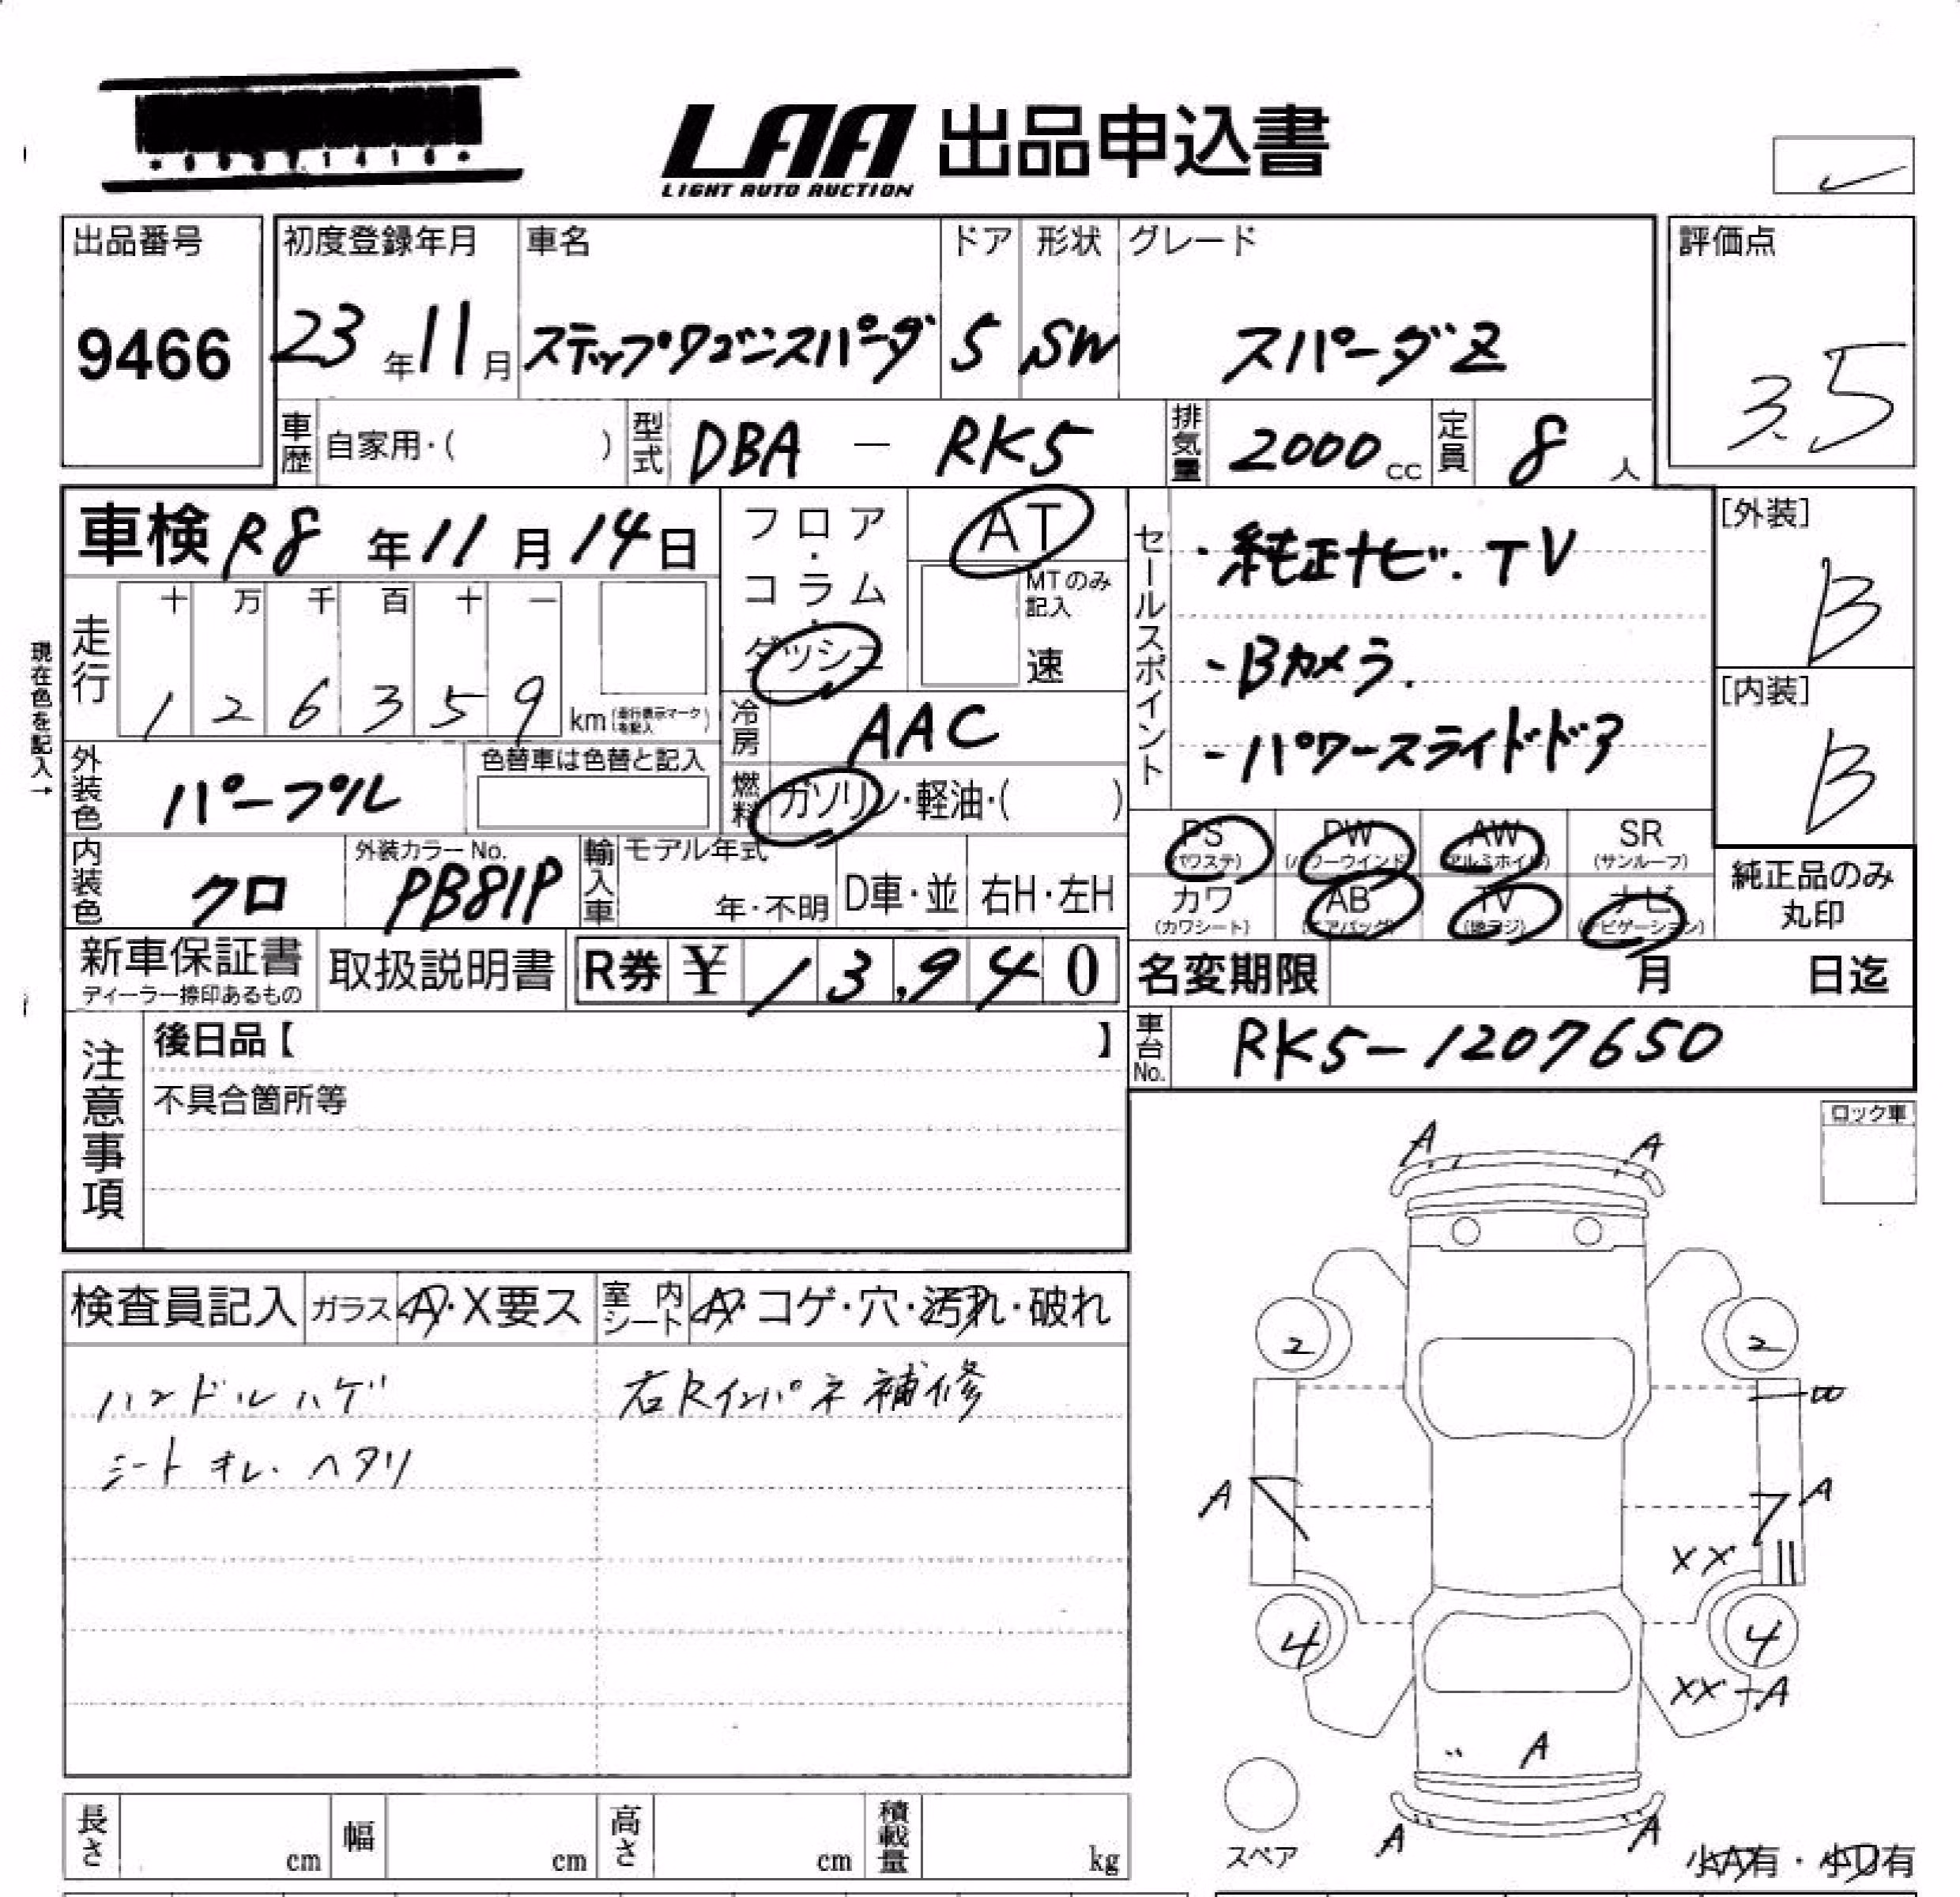 LAA 出品申込書
LIGHT AUTO AUCTION
出品番号 初度登録年月 車名 ドア 形状 グレード 評価点
9466 23年11月 ステップワゴンスパーダ 5 SW スパーダZ 3.5
車歴 自家用・( ) 型式 DBA － RK5 排気量 2000cc 定員 8人
車検 R8年11月14日 フロア・コラム・ダッシュ AT
MTのみ記入 速
現在色を記入→
走行 十 万 千 百 十 一
1 2 6 3 5 9 km(走行表示マークを記入)
冷房 AAC
外装色 パープル 色替車は色替と記入
燃料 ガソリン・軽油・( )
内装色 クロ 外装カラーNo. PB81P 輸入車 モデル年式 年・不明 D車・並 右H・左H
セールスポイント
・純正ナビ.TV
-Bカメラ.
-パワースライドドア
[外装] B
[内装] B
PS (パワステ) PW (パワーウインド) AW (アルミホイル) SR (サンルーフ)
カワ (カワシート) AB (エアバッグ) TV (地デジ) ナビ (ナビゲーション)
純正品のみ丸印
新車保証書 ディーラー捺印あるもの 取扱説明書 R券 ¥ 13,940
名変期限 月 日迄
車台No. RK5-1207650
注意事項
後日品【 】
不具合箇所等
ロック車
検査員記入 ガラス A・X要ス 室内シート A・コゲ・穴・汚れ・破れ
ハンドルハゲ 右Rインパネ補修
シートキレ.ヘタリ
A A
2 2
A A
XX
4 4
XX-A
A
A A
スペア
小A有・小U有
長さ cm 幅 cm 高さ cm 積載量 kg